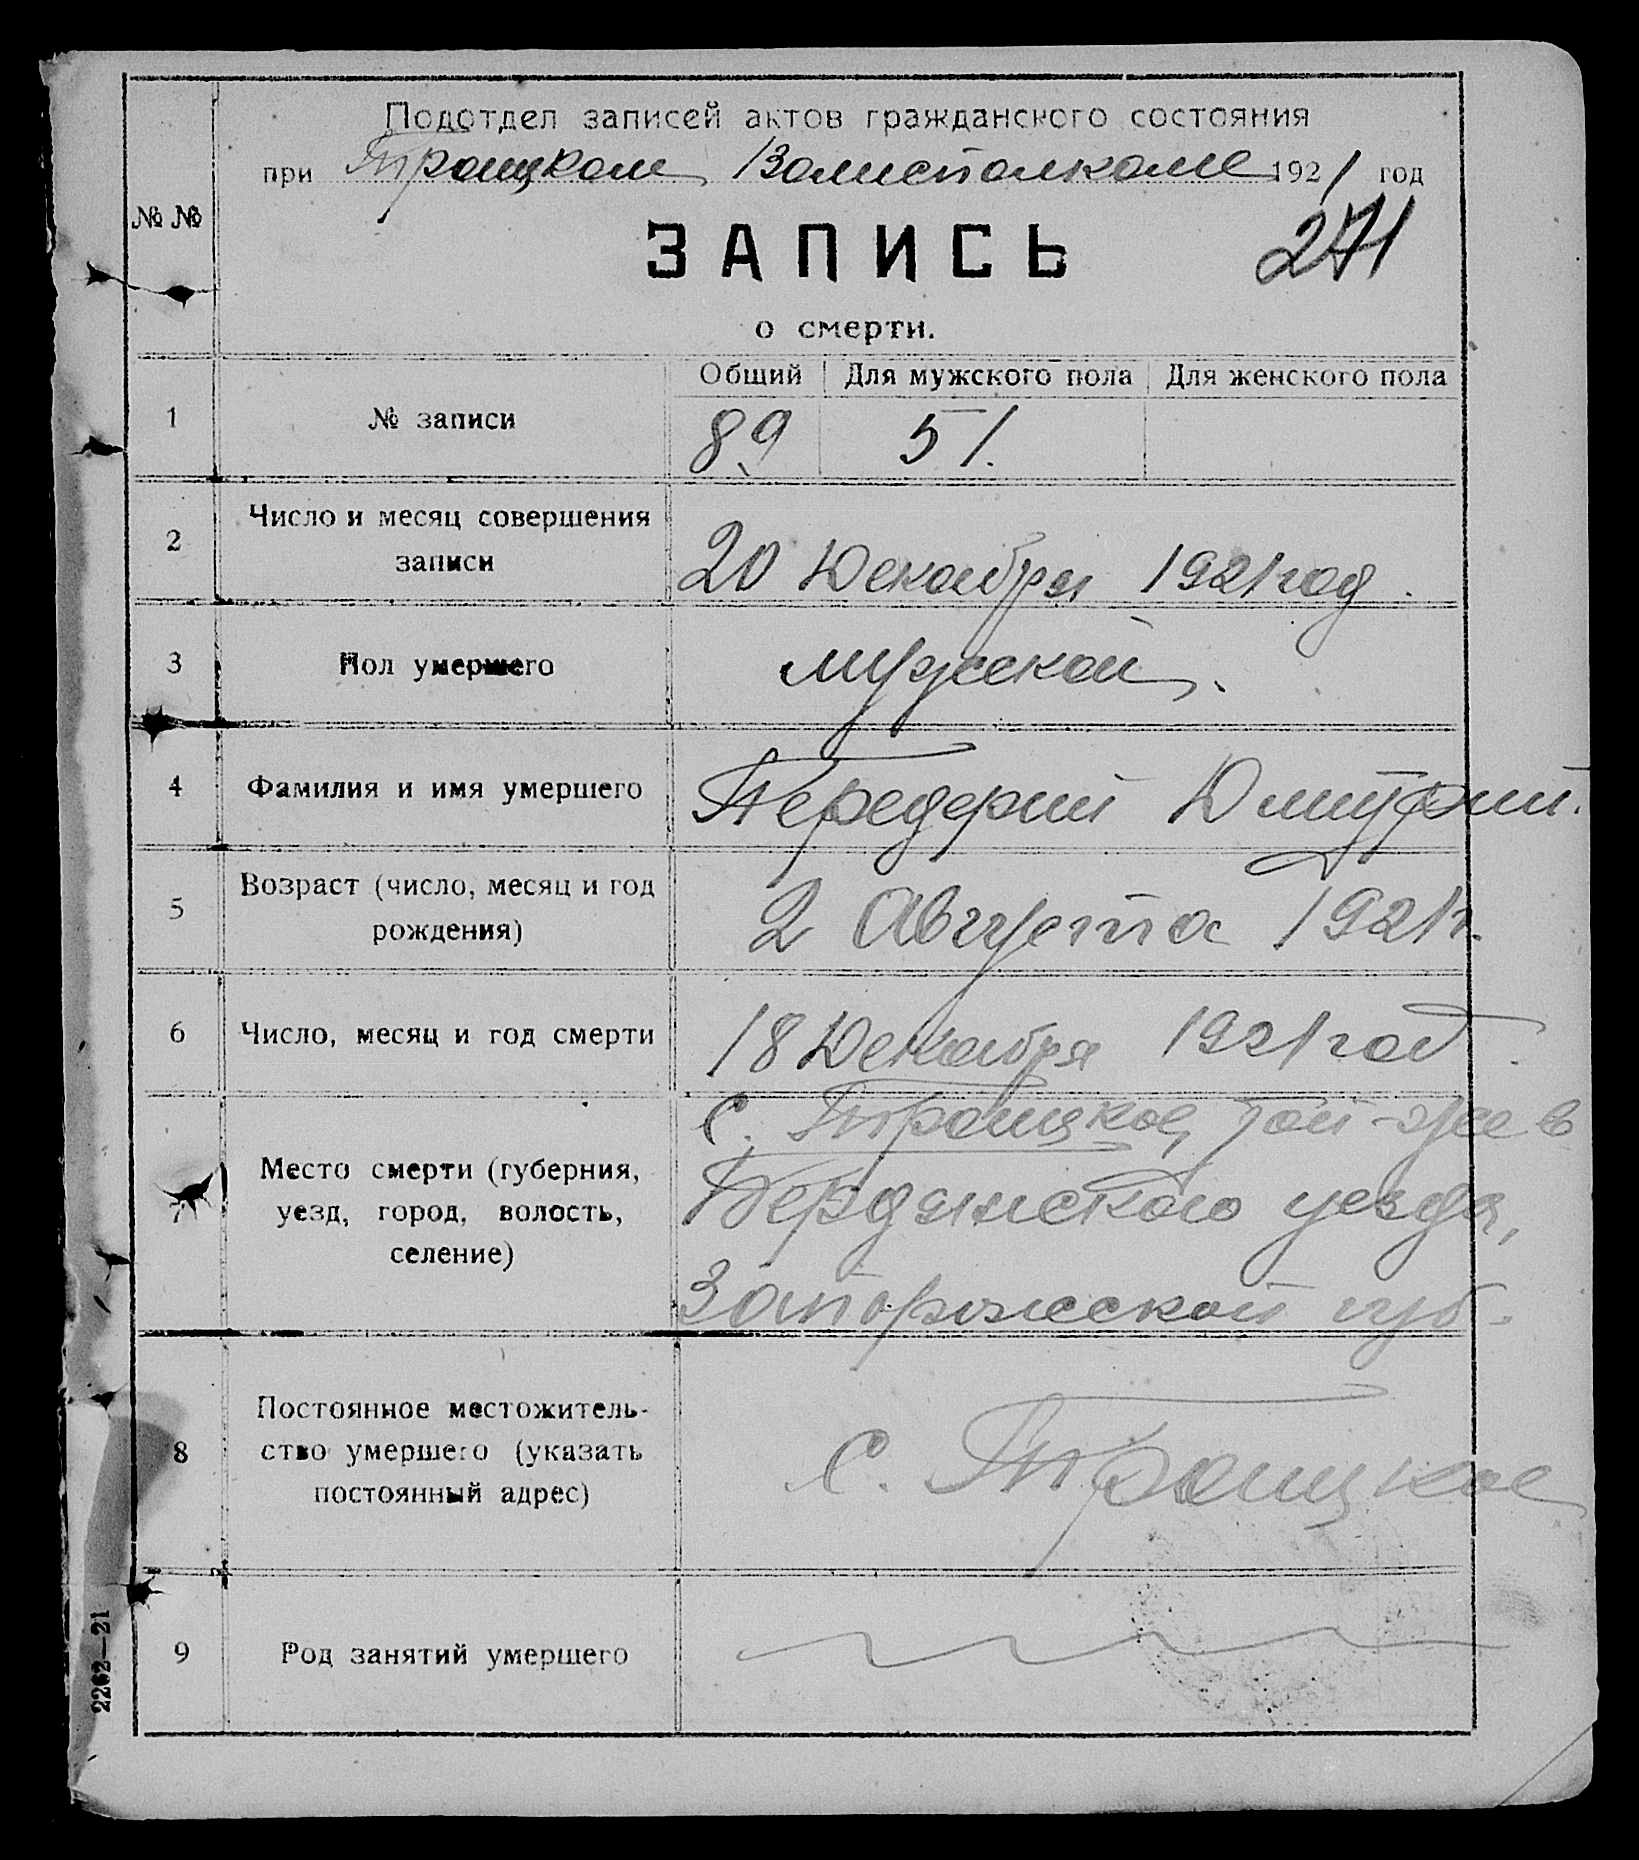 Подотдел записей актов гражданского состояния
при Троицком Волисполкоме 1921 год
№ №
ЗАПИСЬ
271
о смерти.
Общий Для мужского пола Для женского пола
1 № записи 89 51.
2 Число и месяц совершения
записи
20 Декабря 1921 год.
3 Пол умершего мужской.
4 Фамилия и имя умершего Передерий Дмитрий.
5 Возраст (число, месяц и год
рождения)
2 Августа 1921 г.
6 Число, месяц и год смерти 18 Декабря 1921 год.
7 Место смерти (губерния,
уезд, город, волость,
селение)
с. Троицкое, той-же в
Бердянского уезда,
Запорожской губ.
8 Постоянное местожитель-
ство умершего (указать
постоянный адрес)
с. Троицкое
9 Род занятий умершего
2262—21